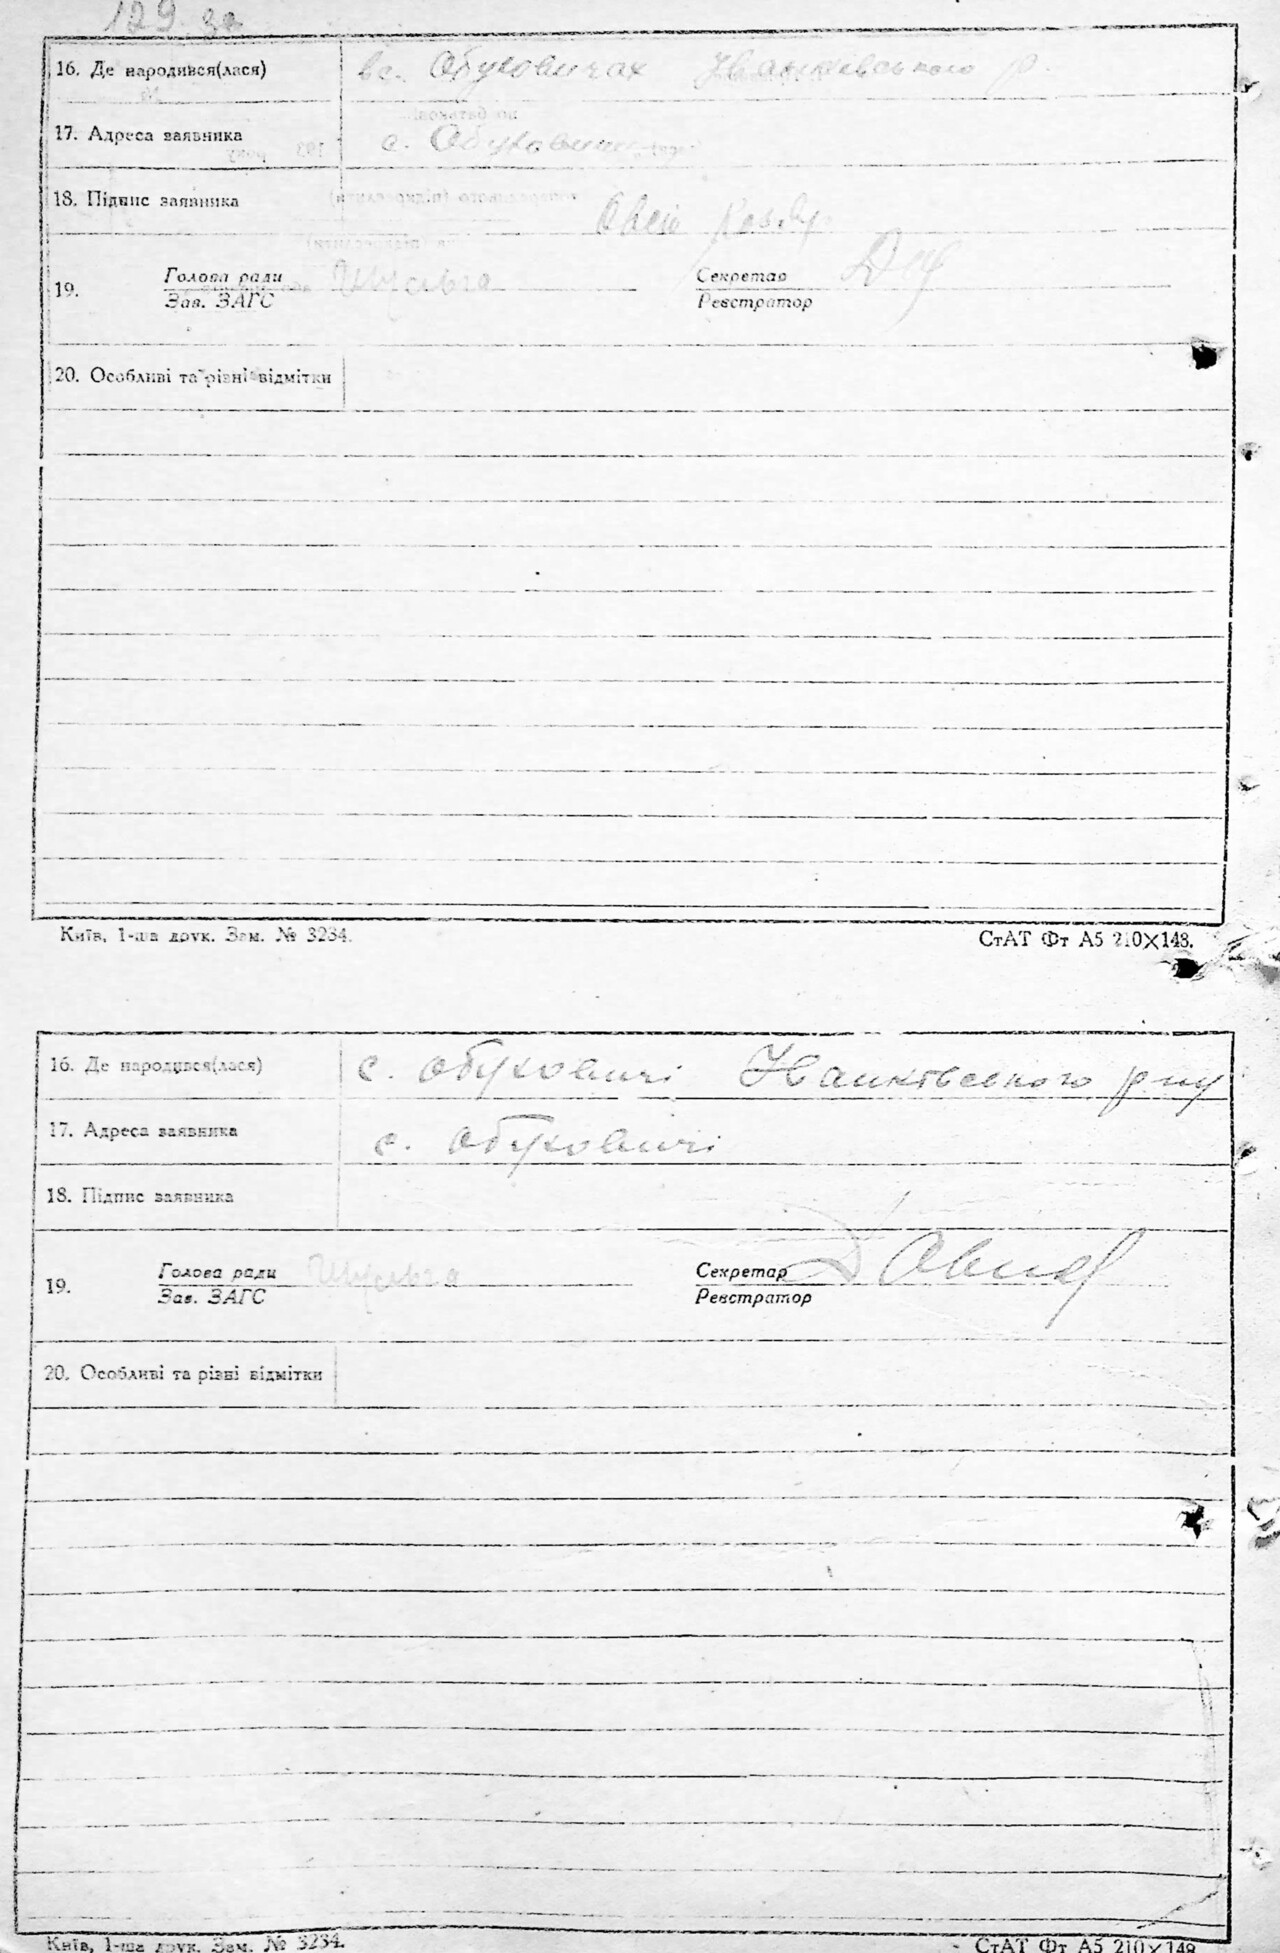 129 зв
16. Де народився(лася) в с. Обуховичах Іванківського р.
17. Адреса заявника с. Обуховичі
18. Підпис заявника
19. Голова ради Шульга Секретар
Зав. ЗАГС Реєстратор
20. Особливі та різні відмітки
Київ, 1-ша друк. Зам. № 3234. СтАТ Фт А5 210×148.
16. Де народився(лася) с. Обуховичі Іванківського р-ну
17. Адреса заявника с. Обуховичі
18. Підпис заявника
19. Голова ради Шульга Секретар
Зав. ЗАГС Реєстратор
20. Особливі та різні відмітки
Київ, 1-ша друк. Зам. № 3234. СтАТ Фт А5 210×148